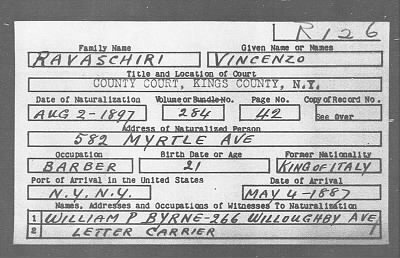 R126
Family Name Given Name or Names
RAVASCHIRI VINCENZO
Title and Location of Court
COUNTY COURT, KINGS COUNTY, N.Y.
Date of Naturalization Volume or Bundle No. Page No. Copy of Record No.
AUG 2-1897 284 42 See Over
Address of Naturalized Person
582 MYRTLE AVE
Occupation Birth Date or Age Former Nationality
BARBER 21 KING OF ITALY
Port of Arrival in the United States Date of Arrival
N.Y. N.Y. MAY 4-1887
Names, Addresses and Occupations of Witnesses To Naturalization
1 WILLIAM P BYRNE-266 WILLOUGHBY AVE
2 LETTER CARRIER 1